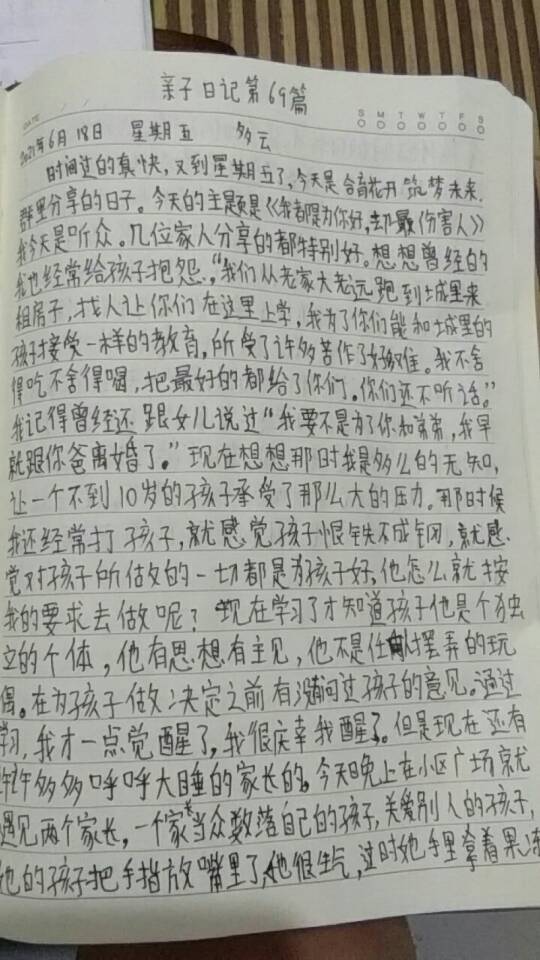 亲子日记第69篇
DATE / /
S M T W T F S
2021年6月18日 星期五 多云
时间过的真快,又到星期五了,今天是合育花开筑梦未来.
群里分享的日子。今天的主题是《我都是为你好,却最伤害人》
我今天是听众。几位家人分享的都特别好。想想曾经的
我也经常给孩子抱怨,“我们从老家大老远跑到城里来
租房子,找人让你们在这里上学,我为了你们能和城里的
孩子接受一样的教育,所受了许多苦作了好难。我不舍
得吃不舍得喝,把最好的都给了你们。你们还不听话。”
我记得曾经还跟女儿说过“我要不是为了你和弟弟,我早
就跟你爸离婚了。”现在想想那时我是多么的无知,
让一个不到10岁的孩子承受了那么大的压力。那时候
我还经常打孩子,就感觉孩子恨铁不成钢,就感
觉对孩子所做的一切都是为孩子好,他怎么就按
我的要求去做呢?现在学习了才知道孩子他是个独
立的个体,他有思想有主见,他不是任时摆弄的玩
偶。在为孩子做决定之前有没问过孩子的意见。通过
学习,我才一点觉醒了,我很庆幸我醒了。但是现在还有
许许多多呼呼大睡的家长的。今天晚上在小区广场就
遇见两个家长,一个家长当众数落自己的孩子,关爱别人的孩子,
她的孩子把手指放嘴里了,他很生气,这时她手里拿着果冻